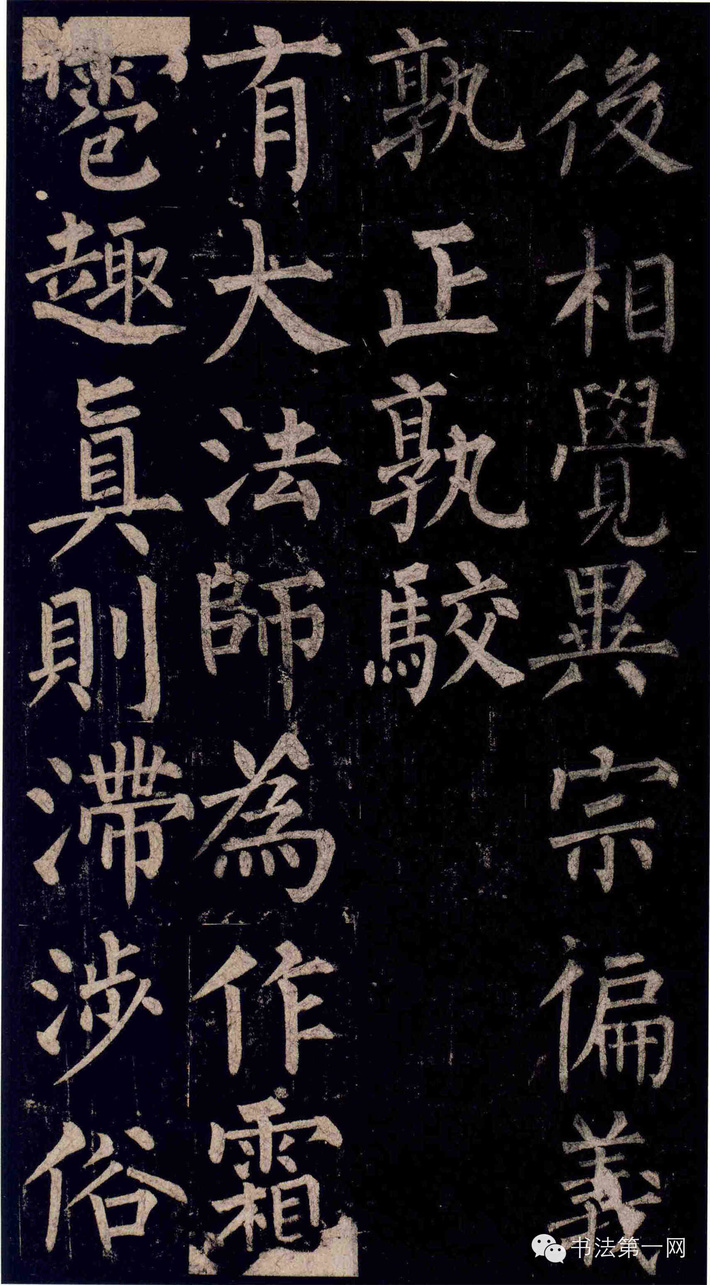 後相覺異宗偏義
孰正孰駮
有大法師為作霜
雹趣眞則滯涉俗
书法第一网